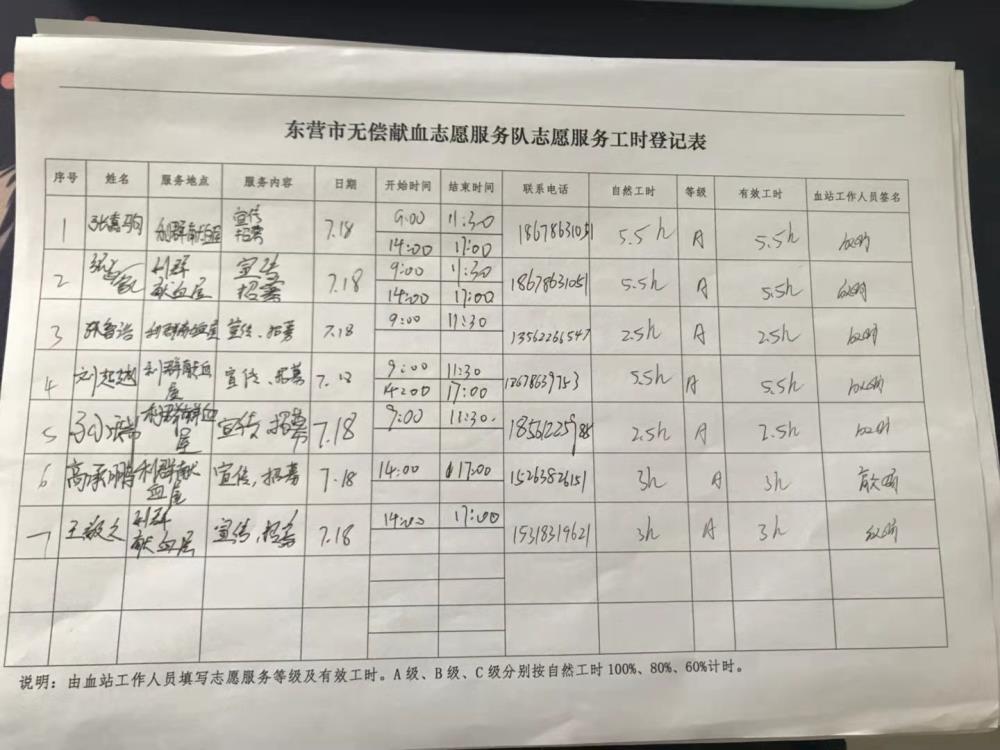 东营市无偿献血志愿服务队志愿服务工时登记表
序号 姓名 服务地点 服务内容 日期 开始时间 结束时间 联系电话 自然工时 等级 有效工时 血站工作人员签名
1 利群献血屋 宣传招募 7.18 9:00 11:30 18678631051 5.5h A 5.5h
14:00 17:00
2 利群献血屋 宣传招募 7.18 9:00 11:30 18678631051 5.5h A 5.5h
14:00 17:00
3 利群献血屋 宣传、招募 7.18 9:00 11:30 13562266547 2.5h A 2.5h
4 利群献血屋 宣传、招募 9:00 11:30 5.5h A 5.5h
14:00 17:00
5 利群献血屋 宣传，招募 7.18 9:00 11:30 2.5h A 2.5h
6 高承鹏 利群献血屋 宣传，招募 7.18 14:00 17:00 15263826151 3h A 3h
7 利群献血屋 宣传，招募 7.18 14:00 17:00 15318319621 3h A 3h
说明：由血站工作人员填写志愿服务等级及有效工时。A级、B级、C级分别按自然工时100%、80%、60%计时。